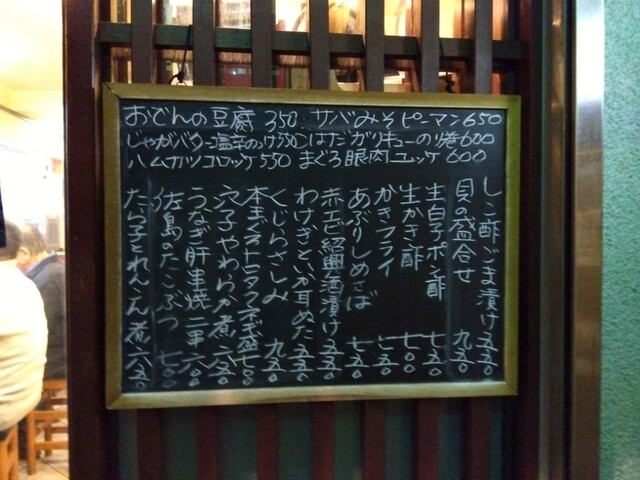 おでんの豆腐 350 サバみそピーマン 650
じゃがバター塩辛のっけ 550 はだかリキューのり巻 600
ハムカツコロッケ 550 まぐろ眼肉ユッケ 600
しこ酢ごま漬け 五五〇
貝の盛合せ 九五〇
生白子ポン酢 七五〇
生かき酢 七〇〇
かきフライ 七五〇
あぶりしめさば 七五〇
赤エビ紹興酒漬け 五五〇
わけぎといか耳ぬた 五五〇
くじらさしみ 九五〇
本まぐろトロタクネギ盛 七〇〇
穴子やわらか煮 六五〇
うなぎ肝串焼 二串 六〇〇
佐島のたこぶつ 七〇〇
たら子とれんこん煮 六五〇